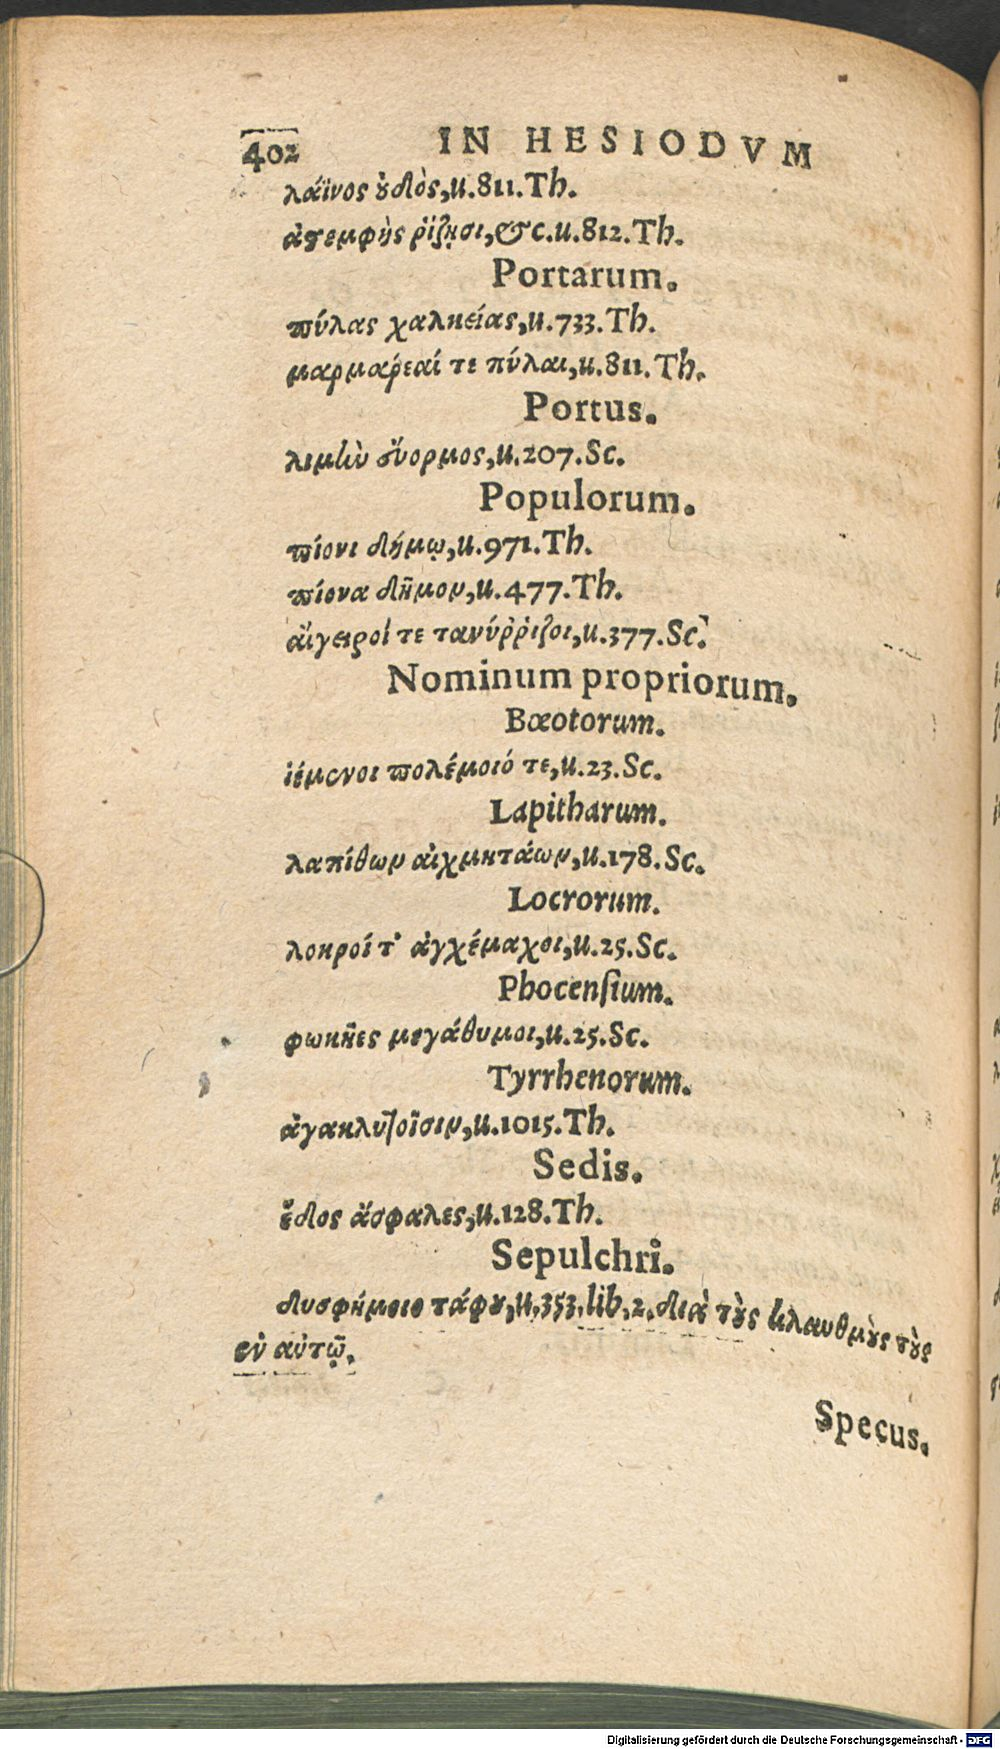 402 IN HESIODVM
λάϊνος οὐδὸς, u.811.Th.
ἀστεμφὴς ῥίζῃσι, &c. u.812.Th.
Portarum.
πύλας χαλκείας, u.733.Th.
μαρμαρεαί τε πύλαι, u.811.Th.
Portus.
λιμὴν εὔορμος, u.207.Sc.
Populorum.
πίονι δήμῳ, u.971.Th.
πίονα δῆμον, u.477.Th.
αἴγειροί τε τανύῤῥιζοι, u.377.Sc.
Nominum propriorum.
Bœotorum.
ἱέμενοι πολέμοιό τε, u.23.Sc.
Lapitharum.
λαπίθων αἰχμητάων, u.178.Sc.
Locrorum.
λοκροί τ' ἀγχέμαχοι, u.25.Sc.
Phocenſium.
φωκῆες μεγάθυμοι, u.25.Sc.
Tyrrhenorum.
ἀγακλυτοῖσιν, u.1015.Th.
Sedis.
ἕδος ἄσφαλες, u.128.Th.
Sepulchri.
δυσφήμοιο τάφου, u.353.lib.2. διὰ τοὺς κλαυθμοὺς τοὺς
ἐν αὐτῷ.
Specus.
Digitalisierung gefördert durch die Deutsche Forschungsgemeinschaft - DFG